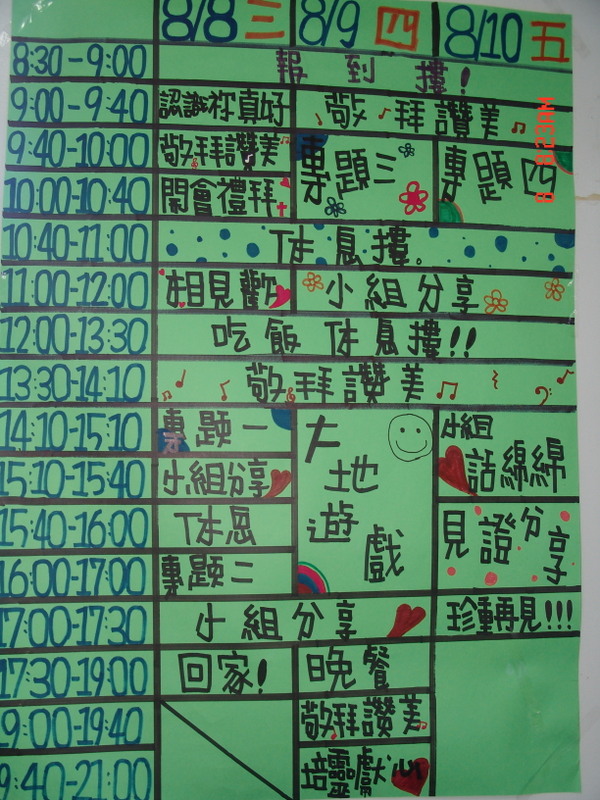 8/8 三 8/9 四 8/10 五
8:30-9:00 報到摟!
9:00-9:40 認識祢真好 敬拜讚美
9:40-10:00 敬拜讚美 專題三 專題四
10:00-10:40 開會禮拜
10:40-11:00 休息摟。
11:00-12:00 相見歡 小組分享
12:00-13:30 吃飯休息摟!!
13:30-14:10 敬拜讚美
14:10-15:10 專題一 大地遊戲 小組話綿綿
15:10-15:40 小組分享
15:40-16:00 休息 見證分享
16:00-17:00 專題二
17:00-17:30 小組分享 珍重再見!!!
17:30-19:00 回家! 晚餐
9:00-19:40 敬拜讚美
9:40-21:00 培靈獻心
8:23AM